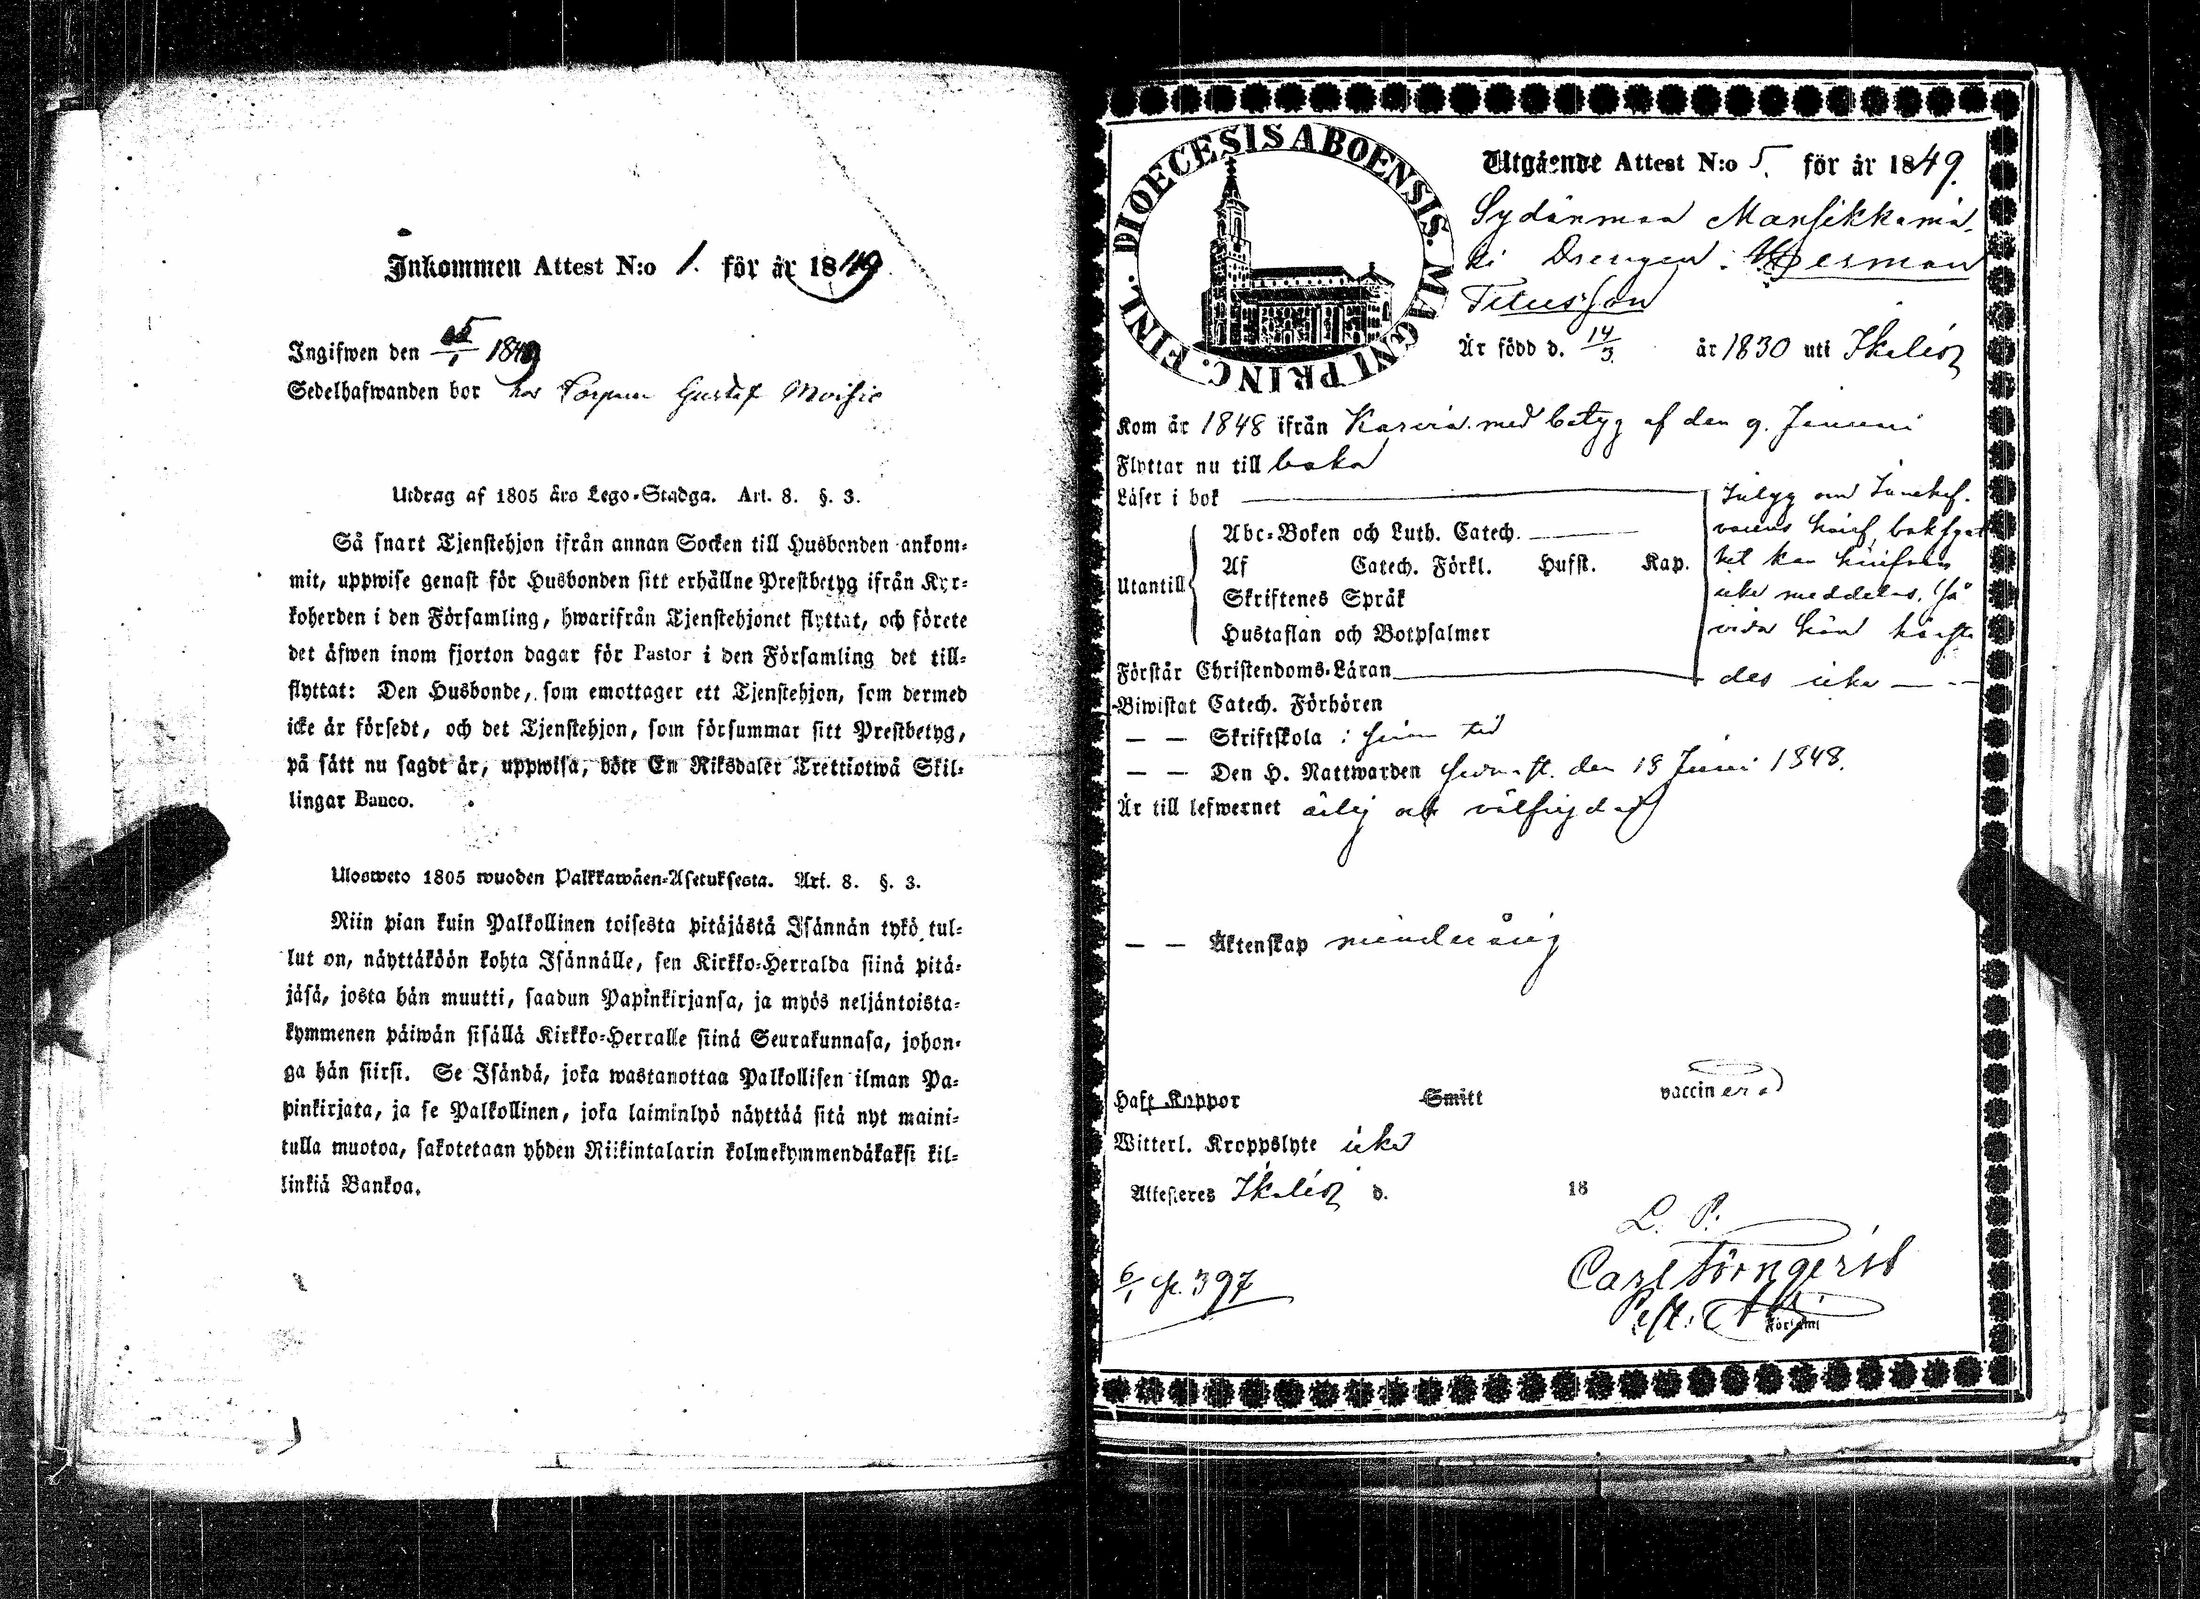 Inkommen Attest N:o 1. för år 1849
Ingifwen den 1849
Sedelhafwanden bor hos Gustaf
Utdrag af 1805 års Lego-Stadga. Art. 8. §. 3.
Så snart Tjenstehjon ifrån annan Socken till Husbonden ankom-
mit, uppwise genast för Husbonden sitt erhållne Prestbetyg ifrån Kyr-
koherden i den Församling, hwarifrån Tjenstehjonet flyttat, och förete
det äfwen inom fjorton dagar för Pastor i den Församling det till-
flyttat: Den Husbonde, som emottager ett Tjenstehjon, som dermed
icke är försedt, och det Tjenstehjon, som försummar sitt Prestbetyg,
på sätt nu sagdt är, uppwisa, böte En Riksdaler Trettiotwå Skil-
lingar Banco.
Ulosweto 1805 wuoden Palkkawäen-Asetuksesta. Art. 8. §. 3.
Niin pian kuin Palkollinen toisesta pitäjästä Isännän tykö tul-
lut on, näyttäköön kohta Isännälle, sen Kirkko-Herralda siinä pitä-
jäsä, josta hän muutti, saadun Papinkirjansa, ja myös neljäntoista-
kymmenen päiwän sisällä Kirkko-Herralle siinä Seurakunnasa, johon-
ga hän siirsi. Se Isändä, joka wastanottaa Palkollisen ilman Pa-
pinkirjata, ja se Palkollinen, joka laiminlyö näyttää sitä nyt maini-
tulla muotoa, sakotetaan yhden Riikintalarin kolmekymmendäkaksi kil-
linkiä Bankoa.
DIOECESIS ABOENSIS. MAGNI PRINC. FINL.
Utgående Attest N:o 5. för år 1849.
Sydänmaa Mansikkamä-
ki Drengen: Herman
Titusson
Är född d. 14/3 år 1830 uti Ikalis
Kom år 1848 ifrån Karvia med betyg af den 9. Januari
Flyttar nu till baka
Läser i bok
Abc-Boken och Luth. Catech.
Utantill
Af Catech. Förkl. Husst. Kap.
Skriftenes Språk
Hustaflan och Botpsalmer
Förstår Christendoms-Läran
betyg om
kan
icke meddelas, så
vida han
des icke
Biwistat Catech. Förhören
— — Skriftskola i sinom tid
— — Den H. Nattwarden den 18 Juni 1848.
Är till lefwernet ärlig och välfrejdad
— — Äktenskap minderårig
Haft Koppor Smitt vaccinerad
Witterl. Kroppslyte icke
Attesteres Ikalis d. 18
L. P.
Carl
6/1 397
Församl